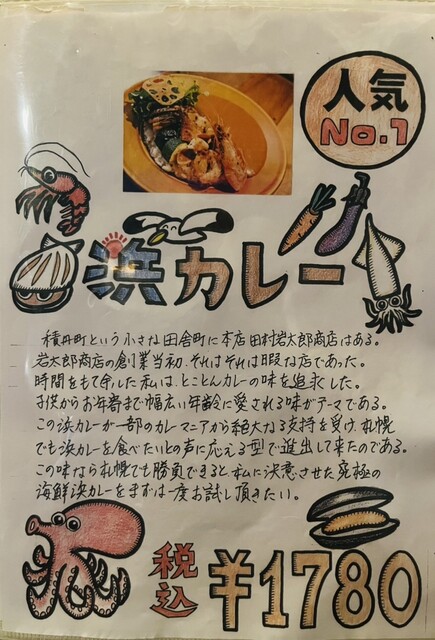 人気
No.1
浜カレー
積丹町という小さな田舎町に本店田村岩太郎商店はある。
岩太郎商店の創業当初、それはそれは暇な店であった。
時間をもて余した私は、とことんカレーの味を追求した。
子供からお年寄まで幅広い年齢に愛される味がテーマである。
この浜カレーが一部のカレーマニアから絶大なる支持を受け、札幌
でも浜カレーを食べたいとの声に応える型で進出して来たのである。
この味なら札幌でも勝負できると私に決意させた究極の
海鮮浜カレーをまずは一度お試し頂きたい。
税込
¥1780